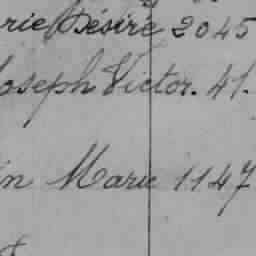 rie Désiré 2045
Joseph Victor. 41.
in Marie 1147